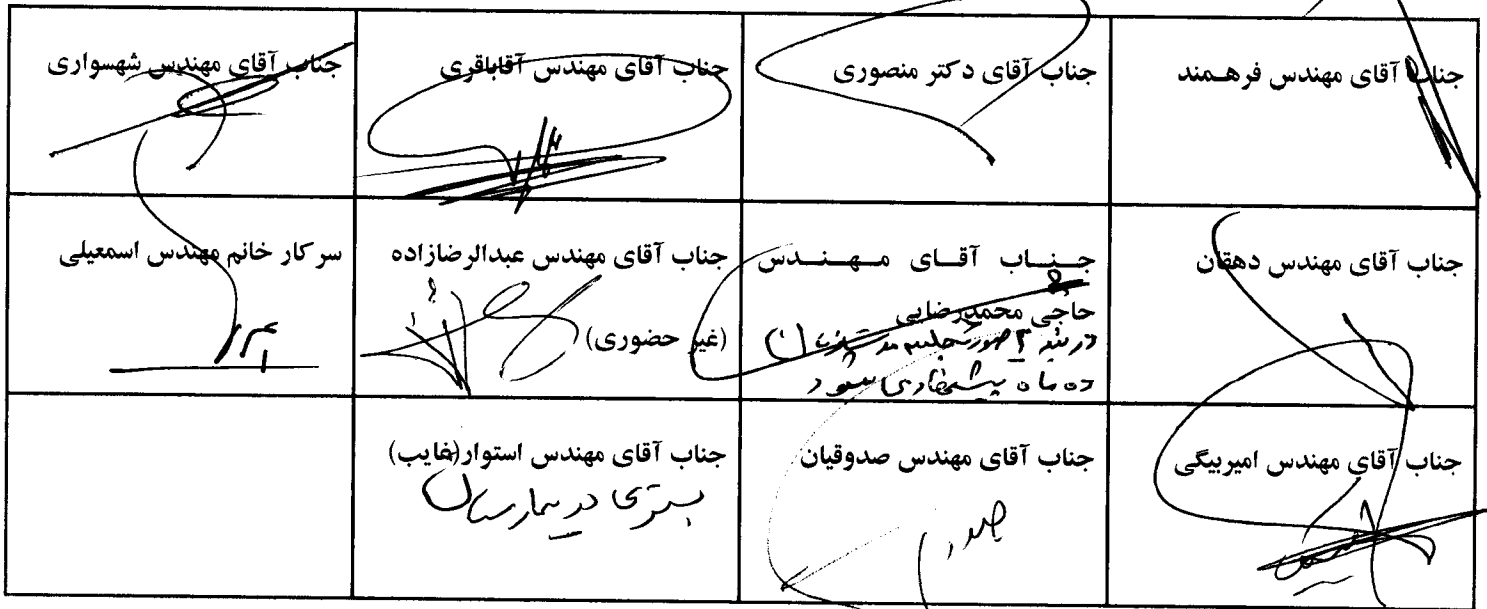 جناب آقای مهندس فرهـمند
جناب آقای دکتر منصوری
جناب آقای مهندس آقاباقری
جناب آقای مهندس شهسواری
جناب آقای مهندس دهقان
جـنــاب آقــای مــهــنــدس
حاجی محمدرضایی
در بند ۳ صورتجلسه مدت زمان
ده ماه پیشنهاد می شود
جناب آقای مهندس عبدالرضازاده
(غیر حضوری)
سرکار خانم مهندس اسمعیلی
جناب آقای مهندس امیربیگی
جناب آقای مهندس صدوقیان
جناب آقای مهندس استوار(غایب)
بستری در بیمارستان